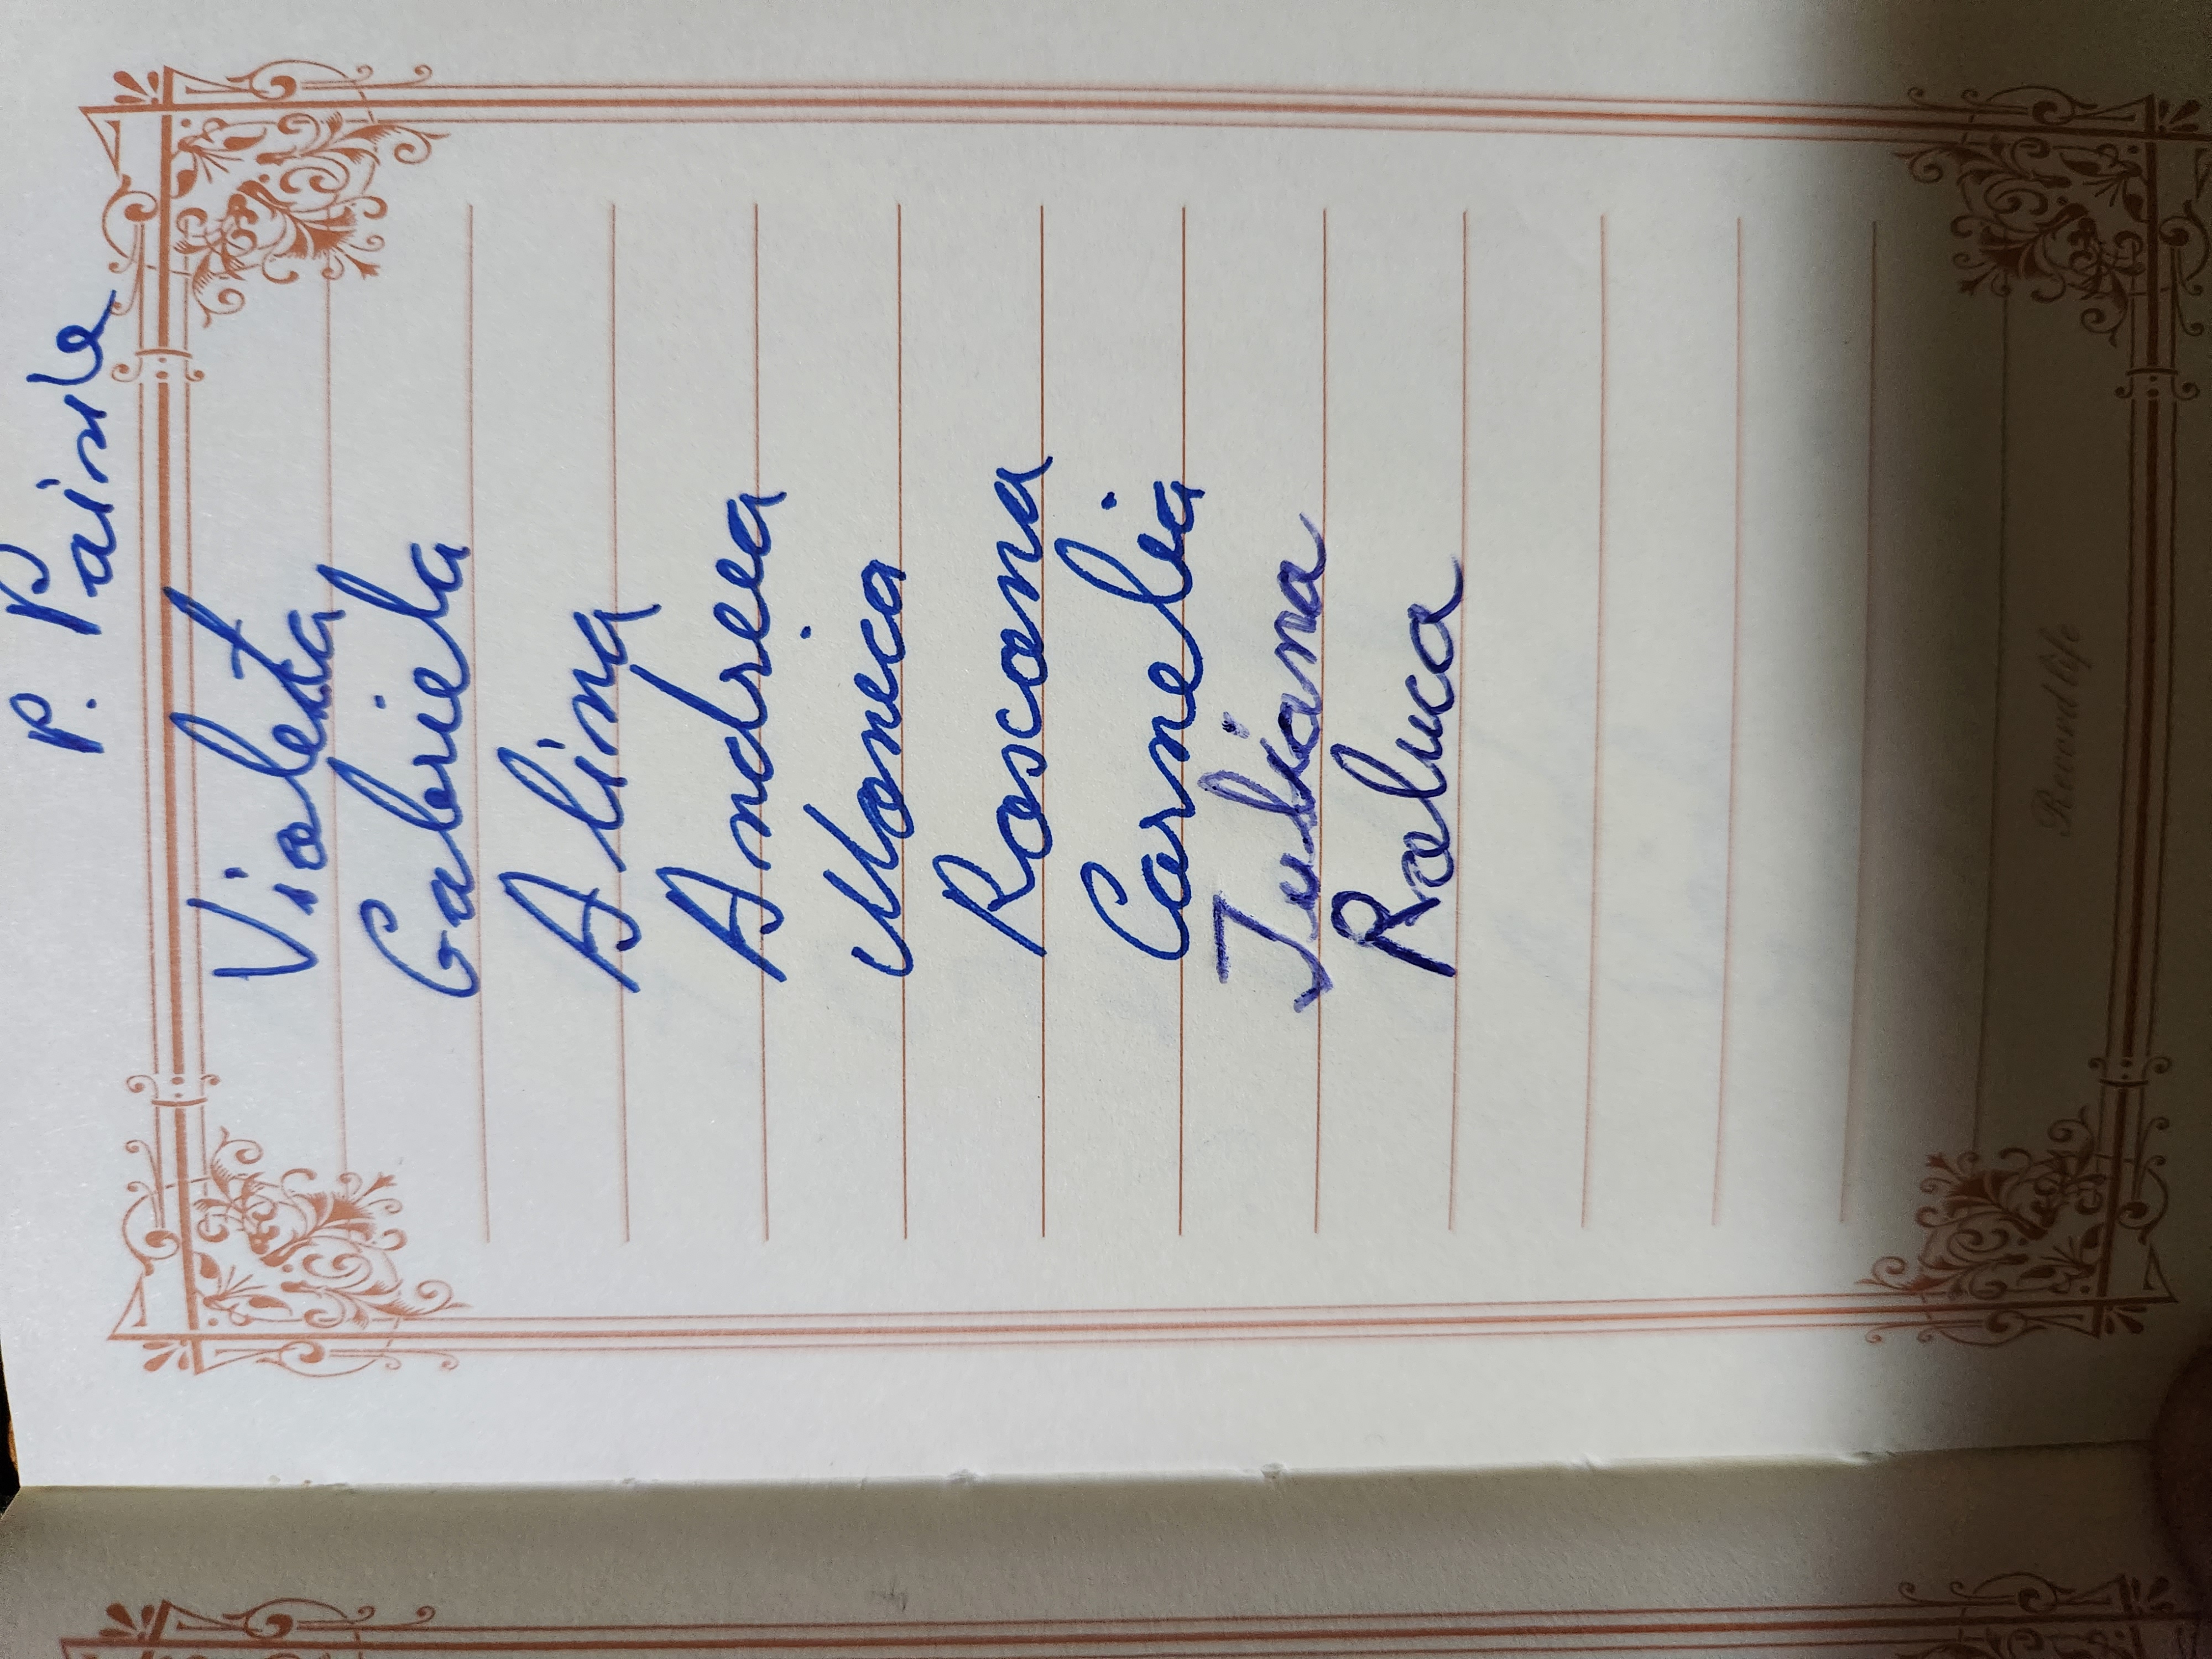 P. Paine
Violeta
Gabriela
Alina
Andreea
Monica
Roxana
Carnelia
Iuliana
Raluca
Record life